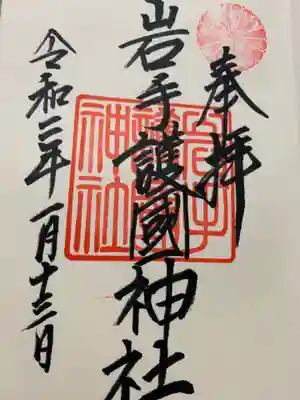 奉拝
岩手護國神社
令和三年一月十三日